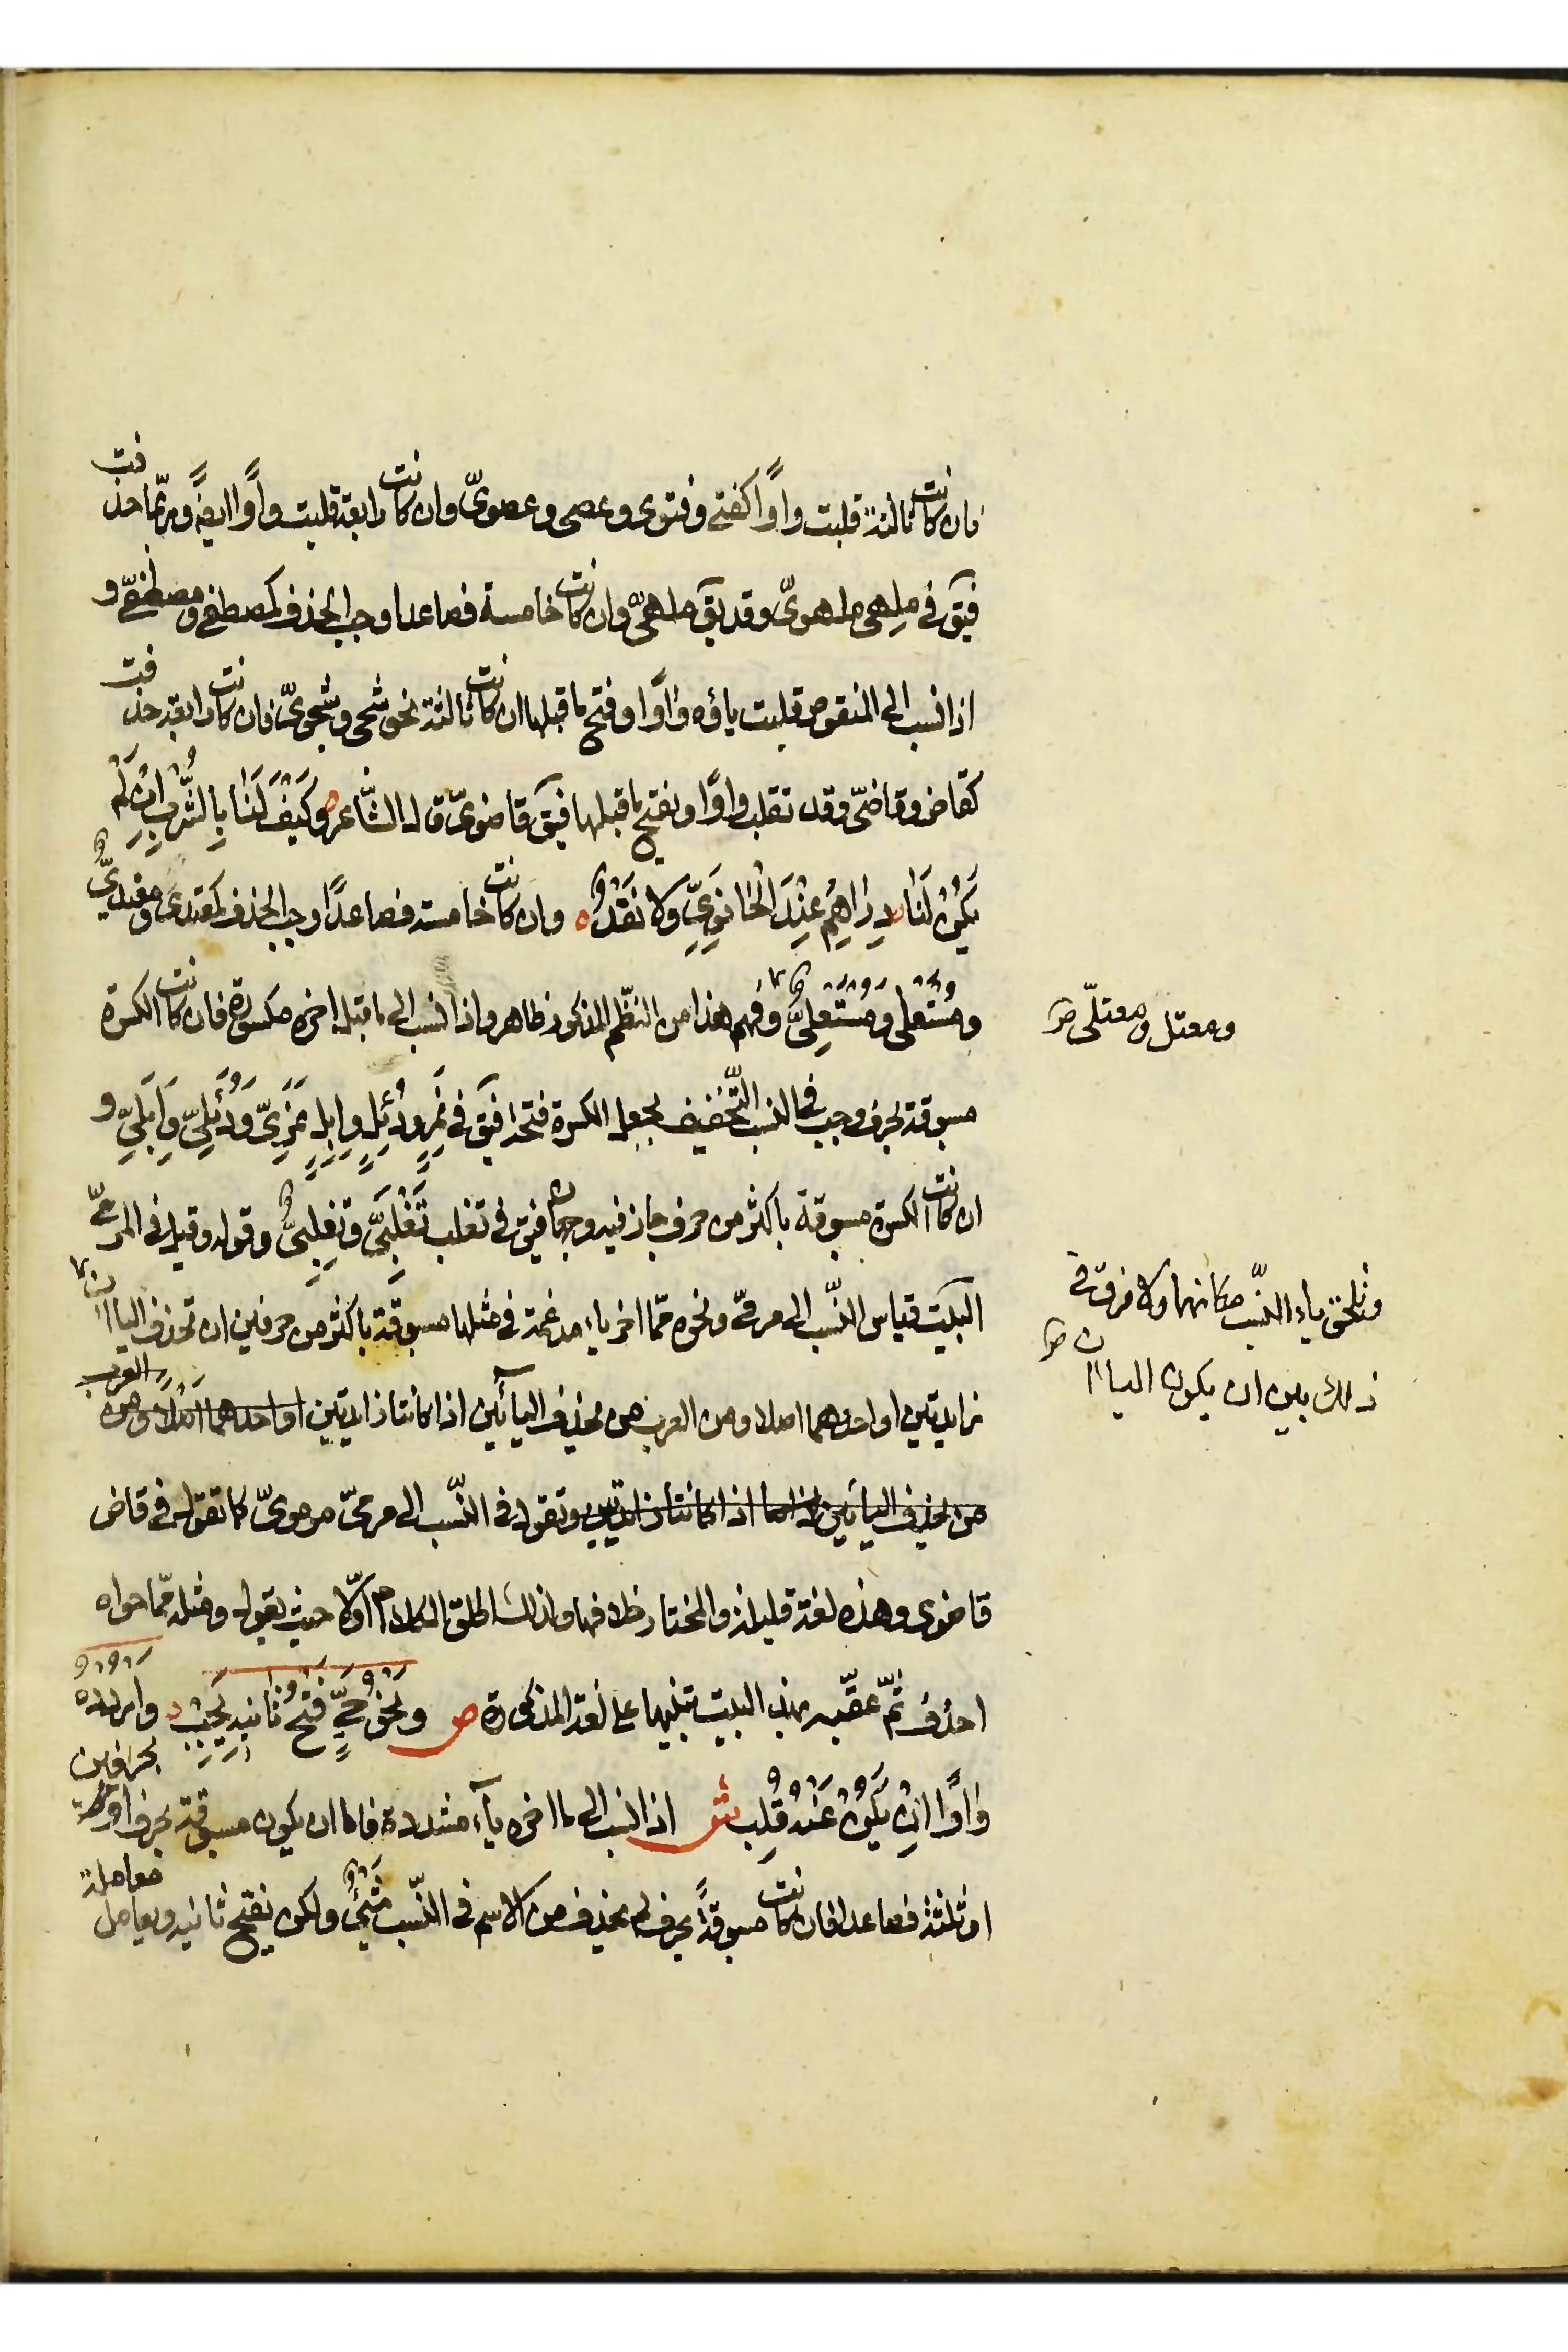 فان كانت ثالثة قلبت واوًا كفتى وفتوى وعصى وعصويّ وان كانت رابعة قلبت واوًا ايضًا وربّما حذفت
فيق في ملهى ملهويّ وقد يق ملهىّ وان كانت خامسة فصاعدا وجب الحذف كمصطفى ومصطفىّ و
اذا نسب الى المنقوص قلبت ياؤه واوًا وفتح ما قبلها ان كانت ثالثة نحو شجى وشجوىّ فان كانت رابعة حذفت
كقاض وقاضىّ وقد تقلب واوًا ويفتح ما قبلها فيق قاضوىّ قال الشّاعر وَكَيْفَ لَنٰا بِالشُّرْبِ اِنْ لَمْ
يَكُنْ لَنٰا دَرٰاهِمُ عِنْدَ الْحٰانَوِيِّ وَلا نَقْدُ ه وان كانت خامسة فصاعدًا وجب الحذف كمقتدى ومقتدىٌّ
ومُسْتَعلى ومُسْتَعلِىٌّ وفهم هذا من النّظم المذكور ظاهر واذا نسب الى ما قبل اخره مكسورة فان كانت الكسرة
ومعتل ومعتلّى صح
مسبوقة بحرف وجب في النسب التّخفيف بجعل الكسرة فتحة فيق في نَمِرٍ ودُئِلٍ واِبِلٍ نَمَرِىّ ودُئَلِىّ واِبَلِىّ و
ان كانت الكسرة مسبوقة باكثر من حرف جاز فيه وجهان فيق في تغلب تَغْلَبِىٌّ وتغلِبىٌّ وقوله وقيل فى المرمىّ
البيت قياس النّسب الى مرمىّ ونحوه ممّا اخر ياء مدغمة في مثلها مسبوقة باكثر من حرفين ان تحذف الياان
وتلحق ياء النسّب مكانهما ولا فرق في
ذلك بين ان يكون الياان صح
زايدتين او احدهما اصلا ومن العرب من يحذف اليائين اذا كانتا زايدتين او احدهما اصلا ومن العرب
من يحذف اليائين اذا كانتا زايدتين وتقول فى النّسب الى مرمىّ مرموىّ كما تقول في قاض
قاضوى وهذه لغة قليلة والمختار خلافها ولذلك اطلق الكلام اوّلا حيث يقول ومثله ممّا حواه
احذف ثمّ عقّبه بهذا البيت تنبيها على لغة المذكورة ص ونَحْوُ حَيٍّ فَتْحُ ثٰانِيهِ يَجِبْ وارْدُدْهُ
وٰاوًا اِنْ يَكُنْ عَنْهُ قُلِب ش اذا نسب الى ما اخره يآء مشددة فاما ان يكون مسبوقة بحرف او بحرفين
او ثلثة فصاعدا فان كانت مسبوقةً بحرف لم يحذف من الاسم في النّسب شَىْءٌ ولكن يفتح ثانيه ويعامل معاملة